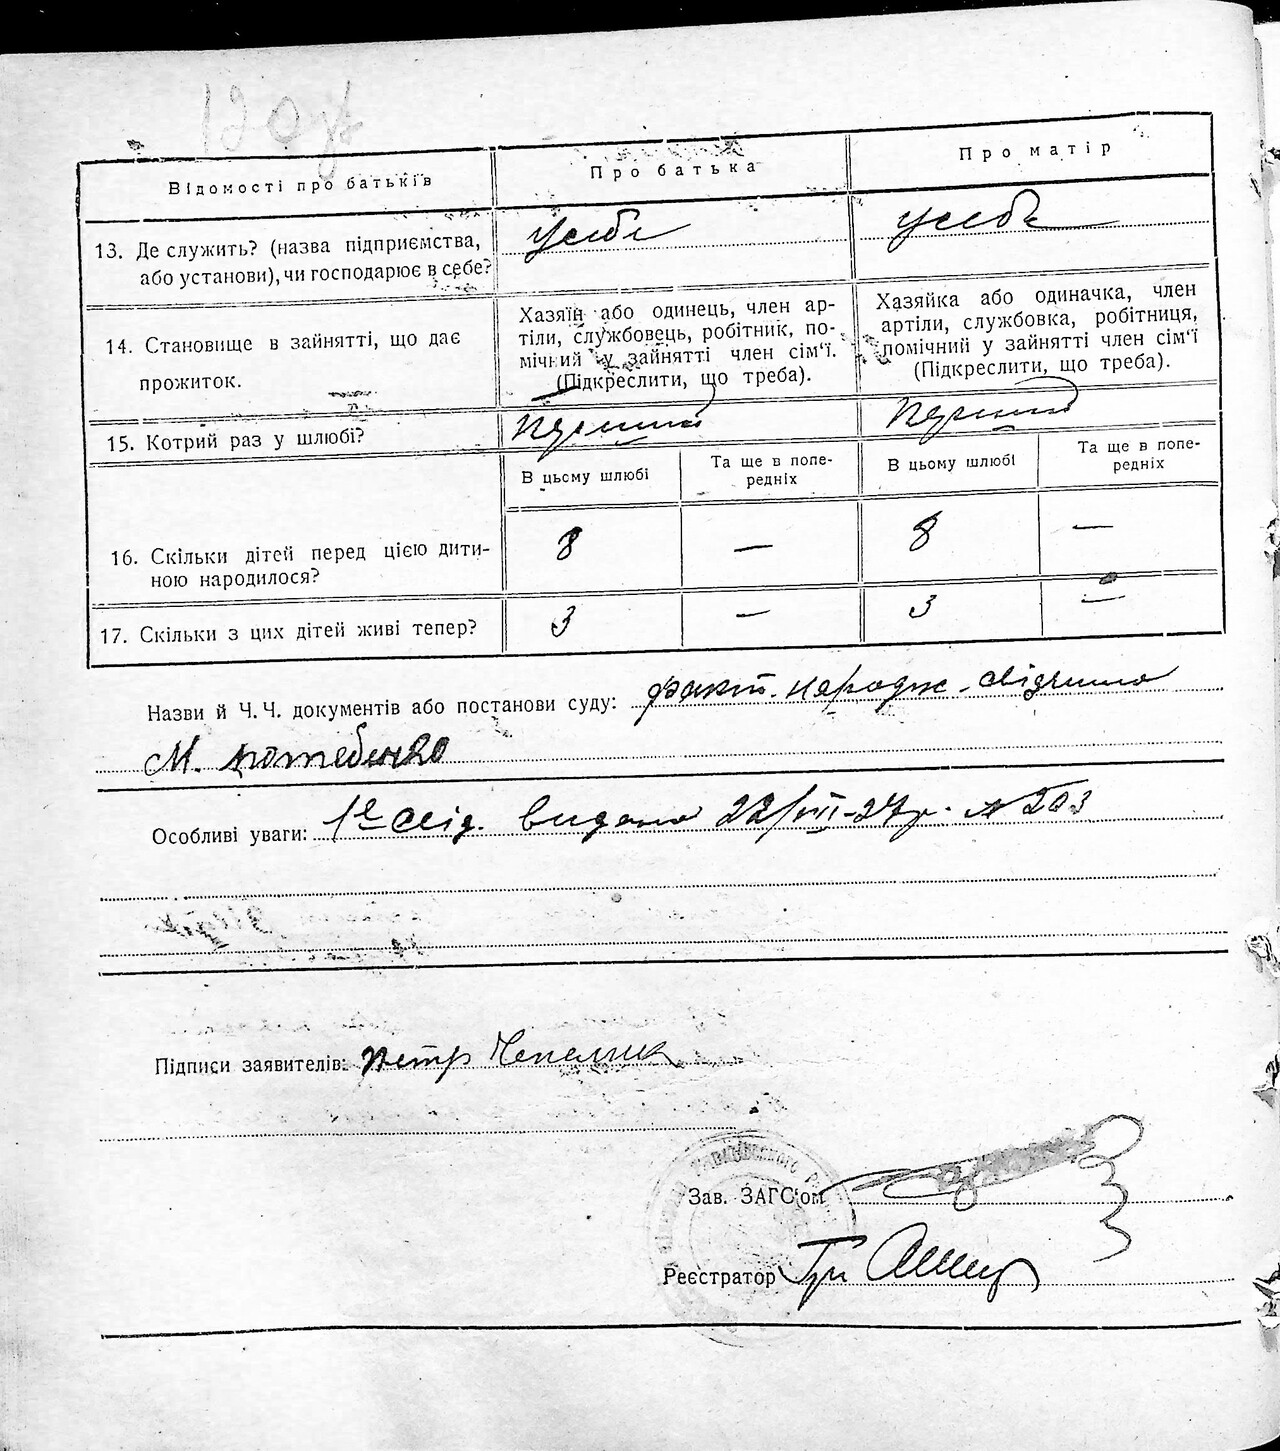 Відомості про батьків
Про батька
Про матір
13. Де служить? (назва підприємства,
або установи), чи господарює в себе?
у себе
у себе
14. Становище в зайнятті, що дає
прожиток.
Хазяїн або одинець, член ар-
тіли, службовець, робітник, по-
мічний у зайнятті член сім'ї.
(Підкреслити, що треба).
Хазяйка або одиначка, член
артіли, службовка, робітниця,
помічний у зайнятті член сім'ї
(Підкреслити, що треба).
15. Котрий раз у шлюбі?
перший
перший
В цьому шлюбі
Та ще в попе-
редніх
В цьому шлюбі
Та ще в попе-
редніх
16. Скільки дітей перед цією дити-
ною народилося?
8 — 8 —
17. Скільки з цих дітей живі тепер?
3 — 3 —
Назви й Ч. Ч. документів або постанови суду: факт. народж.
М. Потебенко
Особливі уваги: видано 22/VII-27р. № 203
Підписи заявителів: Петр Чепелик
Зав. ЗАГС'ом
Реєстратор